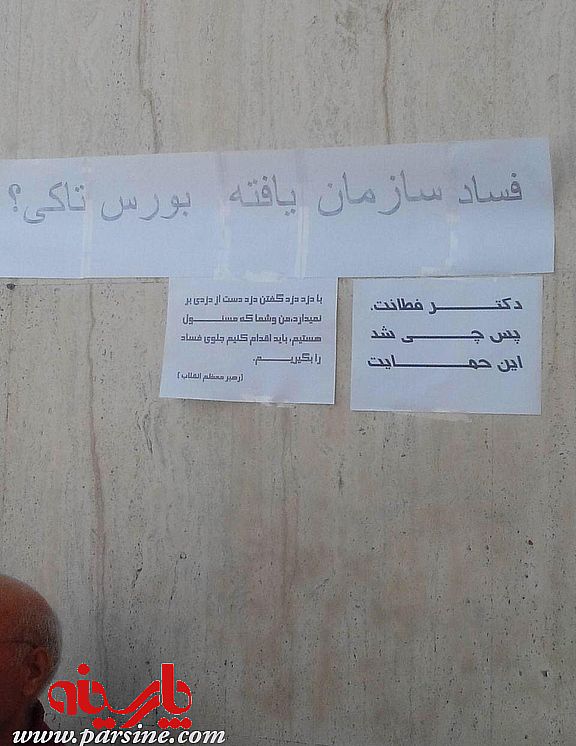 فساد سازمان یافته بورس تاکی؟
دکتر فطانت.
پس چی شد
این حمایت
با دزد دزد گفتن دزد دست از دزدی بر
نمیدارد،من وشما که مسئول
هستیم، باید اقدام کنیم جلوی فساد
را بگیریم.
(رهبر معظم انقلاب)
پارسینه
www.parsine.com